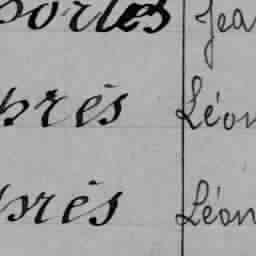 portes Jea
près Léon
près Léon